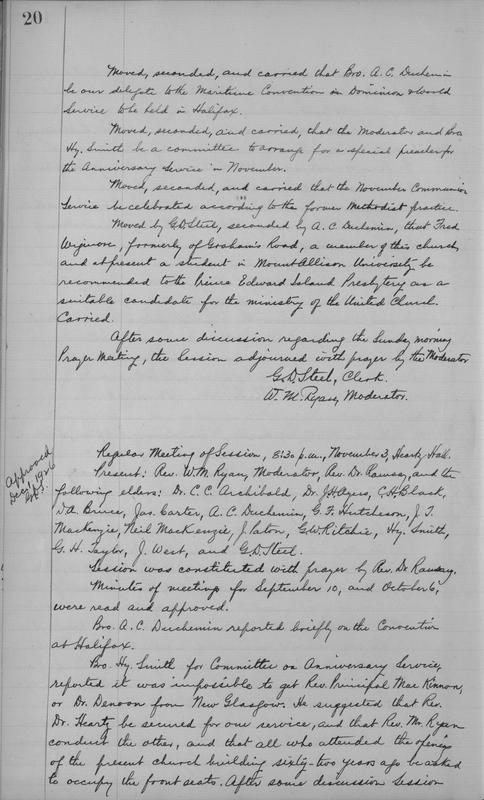 20
Moved, seconded, and carried that Bro. A. C. Duchemin
be our delegate to the Maritime Convention on Dominion & World
Service to be held in Halifax.
Moved, seconded, and carried, that the Moderator and Bro
Hy. Smith be a committee to arrange for a special preacher for
the Anniversary Service in November.
Moved, seconded, and carried that the November Communion
Service be celebrated according to the former Methodist practice.
Moved by G.D. Steel, seconded by A. C. Duchemin, that Fred
formerly of Graham's Road, a member of this church
and at present a student in Mount Allison University be
recommended to the Prince Edward Island Presbytery as a
suitable candidate for the ministry of the United Church.
Carried.
After some discussion regarding the Sunday morning
Prayer Meeting, the Session adjourned with prayer by the Moderator
G.D. Steel, Clerk.
W. M. Ryan, Moderator.
Approved
Dec. 1, 1926
G.D.S.
Regular Meeting of Session, 8:30 p.m., November 3, Heartz Hall.
Present: Rev. W.M. Ryan, Moderator, Rev. Dr. Ramsay, and the
following elders: Dr. C. C. Archibald, Dr. J.H. Ayers, C.H. Black,
D.A. Bruce, Jas. Carter, A. C. Duchemin, G. F. Hutcheson, J. T.
MacKenzie, Neil MacKenzie, J. Paton, G.W. Ritchie, Hy. Smith,
G. H. Taylor, J. West, and G.D. Steel.
Session was constituted with prayer by Rev. Dr. Ramsay.
Minutes of meetings for September 10, and October 6,
were read and approved.
Bro. A. C. Duchemin reported briefly on the Convention
at Halifax.
Bro. Hy. Smith for Committee on Anniversary Service,
reported it was impossible to get Rev. Principal MacKinnon,
or Dr. Denoon from New Glasgow. He suggested that Rev.
Dr. Heartz be secured for one service, and that Rev. Mr. Ryan
conduct the other, and that all who attended the opening
of the present church building sixty-two years ago be asked
to occupy the front seats. After some discussion Session